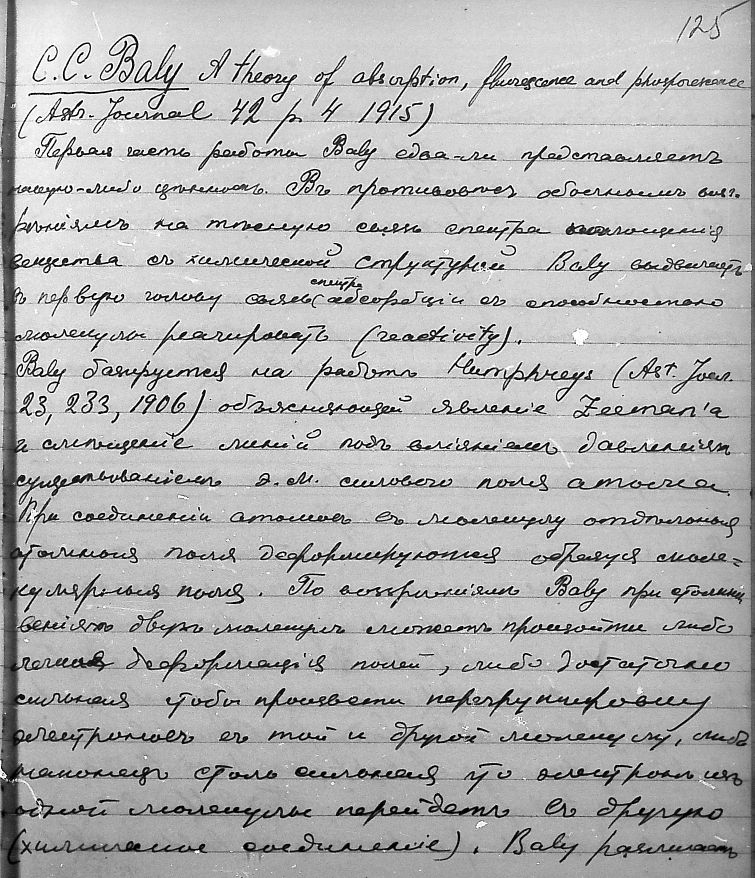 125
C.C. Baly A theory of absorption, fluorescence and phosphorescence
(Astr. Journal 42 p 4 1915)
Первая часть работы Baly едва-ли представляетъ
какую-либо цѣнность. Въ противовѣсъ обычнымъ воз-
рѣніямъ на тѣсную связь спектра поглощенія
вещества съ химической структурой Baly выдвигаетъ
въ первую голову связь спектра абсорбціи съ способностью
молекулы реагировать (reactivity).
Baly базируется на работѣ Humphreys (Ast. Journ.
23, 233, 1906) объясняющей явленіе Zeeman'а
и смѣщеніе линій подъ вліяніемъ давленія
существованіемъ э.м. силового поля атома.
При соединеніи атомовъ въ молекулу отдѣльныя
атомныя поля деформируются образуя моле=
кулярныя поля. По воззрѣніямъ Baly при столкн
веніяхъ двухъ молекулъ можетъ произойти либо
легкая деформація полей, либо достаточно
сильная чтобы произвести перегруппировку
электроновъ въ той и другой молекулѣ, либо
наконецъ столь сильная что электронъ изъ
одной молекулы перейдетъ въ другую
(химическое соединеніе). Baly различаетъ